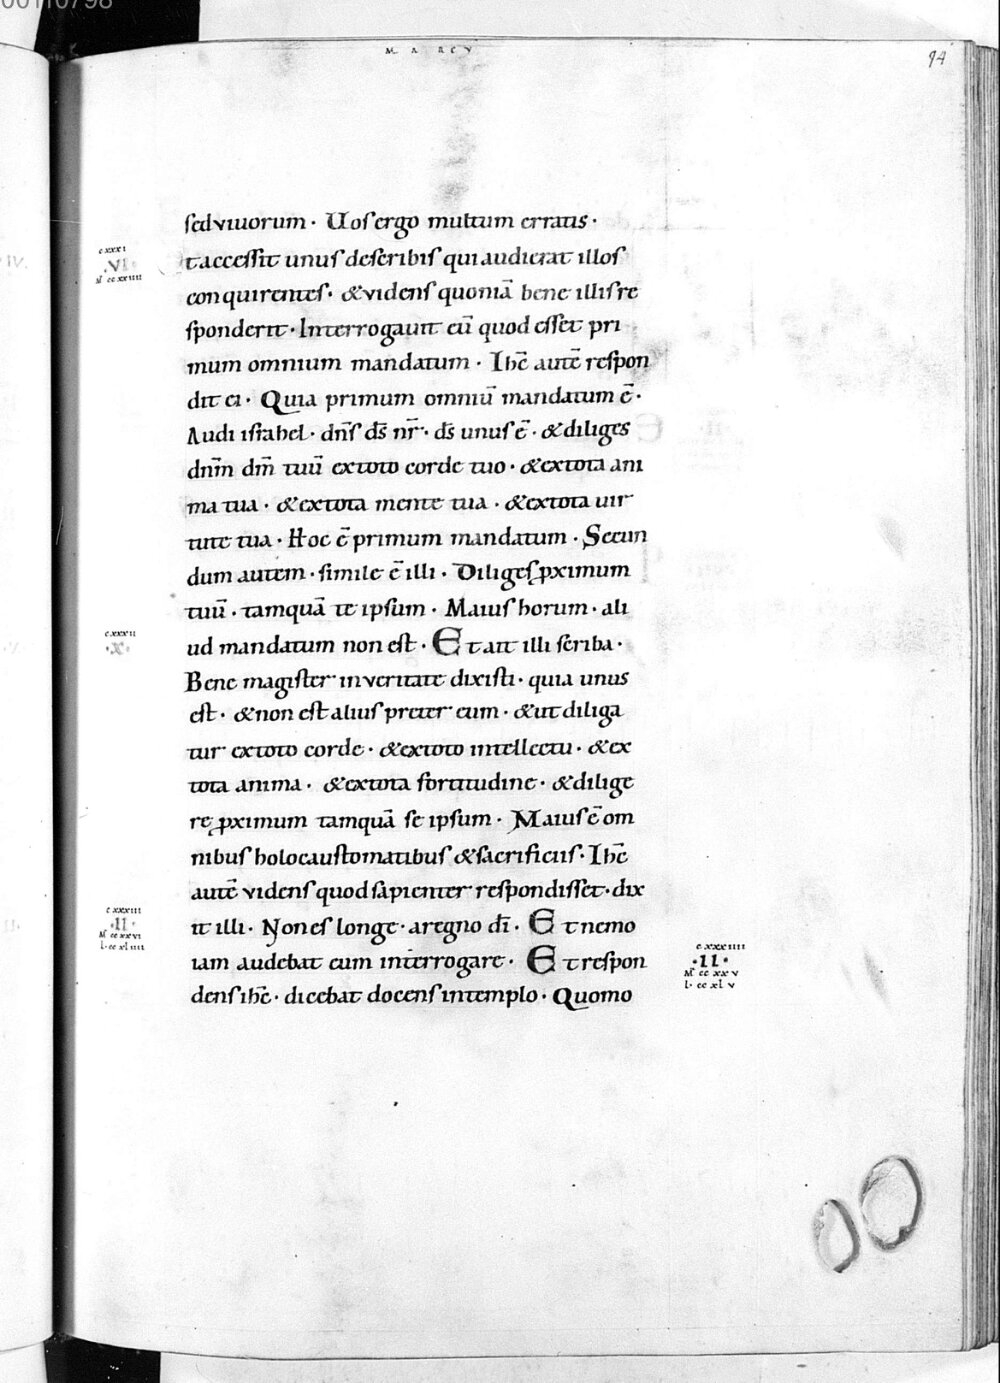 00110798
MARCV
94
sed vivorum · Uos ergo multum erratis ·
cxxxi
·VI·
M cc xx iiii
t accessit unus de scribis qui audierat illos
conquirentes · & videns quoniā bene illis re
sponderit · Interrogauit eū quod esset pri
mum omnium mandatum · Ihc̄ autē respon
dit ei · Quia primum omniū mandatum ē ·
Audi israhel · dn̄s ds̄ nr̄ · ds̄ unus ē · & diliges
dn̄m dm̄ tuū ex toto corde tuo · & ex tota ani
ma tua · & ex tota mente tua · & ex tota uir
tute tua · Hoc ē primum mandatum · Secun
dum autem · simile ē illi · Diliges ꝓximum
tuū · tamquā te ipsum · Maius horum · ali
cxxxii
·X·
ud mandatum non est · Et ait illi scriba ·
Bene magister in veritate dixisti · quia unus
est · & non est alius preter eum · & ut diliga
tur ex toto corde · & ex toto intellectu · & ex
tota anima · & ex tota fortitudine · & dilige
re ꝓximum tamquā se ipsum · Maius ē om
nibus holocaustomatibus & sacrificiis · Ihc̄
autē videns quod sapienter respondisset · dix
cxxxiii
·II·
M cc xx vi
L · cc xl iiii
it illi · Non es longe · a regno dī · Et nemo
iam audebat eum interrogare · Et respon
cxxxiiii
·II·
M cc xx v
L · cc xl v
dens ihc̄ · dicebat docens in templo · Quomo